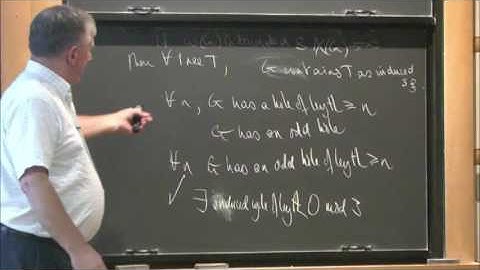 Then ∀ tree T, G contains T as induced
∀n, G has a hole of length ≥ n
G has an odd hole
∀n G has an odd hole of length ≥ n
✓ ∃ induced cycle of length 0 mod 3